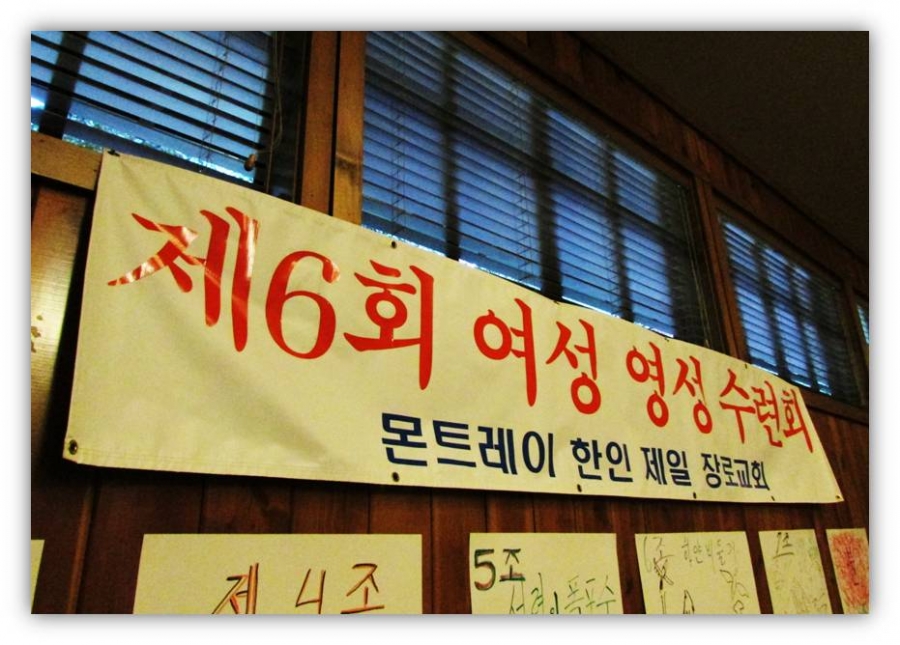 제6회 여성 영성 수련회
몬트레이 한인 제일 장로교회
제 4 조
5조
성령의 폭포수